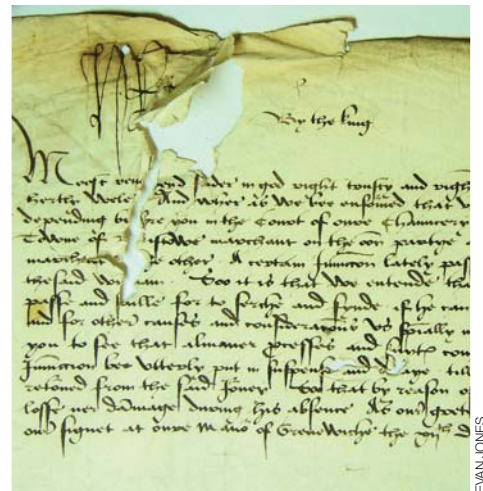 By the king
Moost rev end fader in god right trusty and righ
hertly wele And wher as We be enfourmed that
depending bi fore you in the Court of oure Chauncery
Towne of istowe marchant on the oon partye
marchant the other A certain Iniunccon lately pas
the said W am Soo it is that We entende tha
passe and saille for to serche and fynde if he can
and for other causes and consideracons vs specially m
you to see that almaner processes and further con
Iniunccon bee vtterly put in suspense and till
retorned from the said Jorney Soo that by reason o
losse ner dammage during his absence As our
our signet at oure Manoir of Grenewiche the d
EVAN JONES